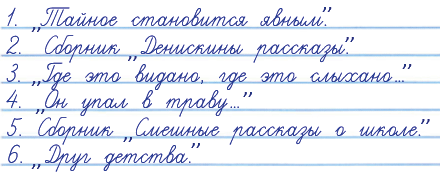 1. „Тайное становится явным".
2. Сборник „Денискины рассказы".
3. „Где это видано, где это слыхано..."
4. „Он упал в траву..."
5. Сборник „Смешные рассказы о школе."
6. „Друг детства."